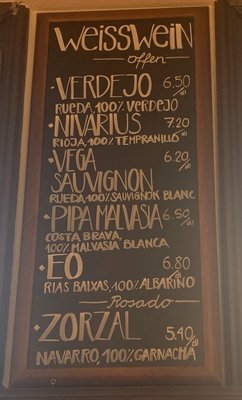 WEISSWEIN
offen
• VERDEJO 6.50/dl
RUEDA, 100% VERDEJO
• NIVARIUS 7.20
RIOJA, 100% TEMPRANILLO /dl
• VEGA 6.20/dl
SAUVIGNON
RUEDA, 100% SAUVIGNON BLANC
• PIPA MALVASIA 6.50/dl
COSTA BRAVA,
100% MALVASIA BLANCA
• EO 6.80/dl
RIAS BAIXAS, 100% ALBARIÑO
Rosado
• ZORZAL 5.40/dl
NAVARRO, 100% GARNACHA